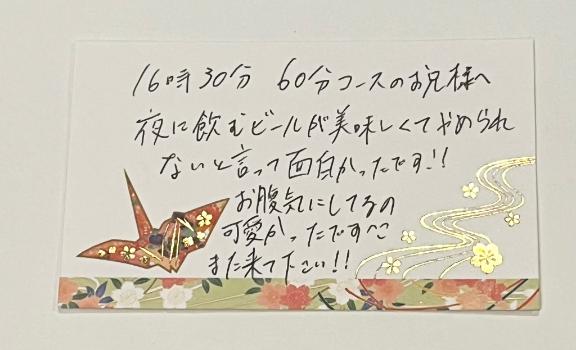 16時30分 60分コースのお兄様へ
夜に飲むビールが美味しくてやめられ
ないと言って面白かったです!!
お腹気にしてるの
可愛かったですへ
また来て下さい!!